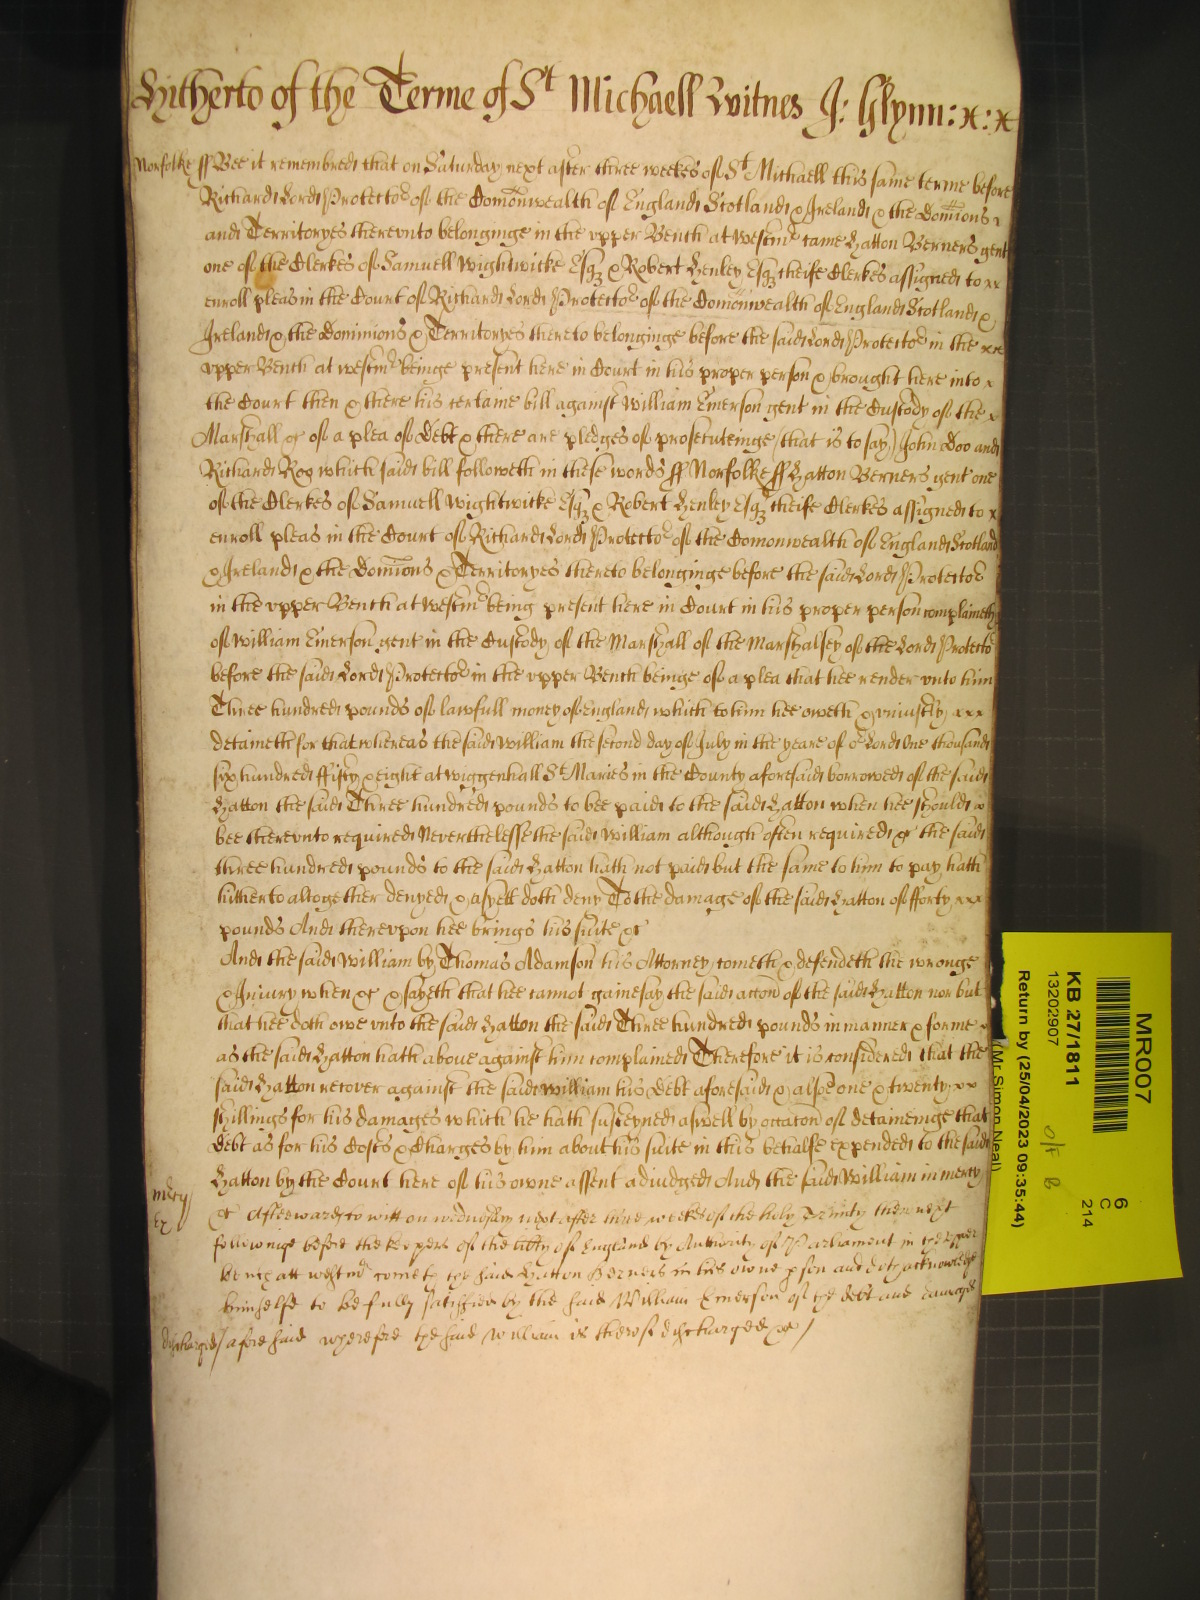 Hitherto of the Terme of St Michaell Witnes J: Glynn:x:x
Norfolke ff Bee it remembred that on Saturday next after three weekes of St Michaell this same terme before
Richard Lord Protector of the Comonwealth of England Scotland & Ireland & the Domions x
and Territoryes therevnto belonginge in the vpper Bench at Westmr came Hatton Berners gent
one of the Clerkes of Samuell Wightwicke Esqz & Robert Henley Esqz cheife Clerkes assigned to xx
enroll pleas in the Court of Richard Lord Protector of the Comonwealth of England Scotland &
Ireland & the Dominions & Territoryes thereto belonginge before the said Lord Protector in the xx
vpper Bench at westmr beinge present here in Court in his proper person & brought here into x
the Court then & there his certaine bill against William Emerson gent in the Custody of the x
Marshall &c of a plea of Debt & there are pledges of prosecuteinge (that is to say) John Doo and
Richard Roo which said bill followeth in these words ff Norfolke ff Hatton Berners gent one
of the Clerkes of Samuell Wightwicke Esqz & Robert Henley Esqz cheife Clerkes assigned to x
enroll pleas in the Court of Richard Lord Protector of the Comonwealth of England Scotland
& Ireland & the Domions & Territoryes thereto belonginge before the said Lord Protector
in the vpper Bench at Westmr being present here in Court in his proper person complaineth
of William Emerson gent in the Custody of the Marshall of the Marshalsey of the Lord Protector
before the said Lord Protector in the vpper Bench beinge of a plea that hee render vnto him
Three hundred pounds of lawfull money of England which to him hee oweth & vniustly xxx
detaineth for that whereas the said William the second day of July in the yeare of or Lord One thousand
six hundred ffifty & eight at Wiggenhall St Maries in the County aforesaid borrowed of the said
Hatton the said Three hundred pounds to bee paid to the said Hatton when hee should x
bee therevnto required Neverthelesse the said William although often required &c the said
three hundred pounds to the said Hatton hath not paid but the same to him to pay hath
hitherto altogether denyed & as yett doth deny To the damage of the said Hatton of fforty xxx
pounds And therevpon hee brings his suite &c
And the said William by Thomas Adamson his Attorney cometh & defendeth the wronge
& Iniury when &c & sayeth that hee cannot gainesay the said accon of the said Hatton nor but
that hee doth owe vnto the said Hatton the said Three hundred pounds in manner & forme x
as the said Hatton hath above against him complained Therefore it is considered that the
said Hatton recover against the said William his Debt aforesaid & alsoe one & twenty xx
shillings for his damages which he hath susteyned aswell by occacon of detaineinge that
debt as for his Costs & Charges by him about his suite in this behalfe expended to the said
Hatton by the Court here of his owne assent adiudged And the said William in mercy
mercy
Ex
&c Afterwards to witt on wednesday next after three weekes of the holy Trinity then next
followinge before the keepers of the libty of England by Authority of Parliament in the vpper
bench att westmr cometh the said Hatton Berners in his owne pson and doth acknowledge
himselfe to be fully satisfied by the said William Emerson of the debt and damages
discharged/ aforesaid wherefore the said William is thereof discharged &c /
MR007
KB 27/1811
13202907
(Mr Simon Neal)
Return by (25/04/2023 09:35:44)
6
C
214